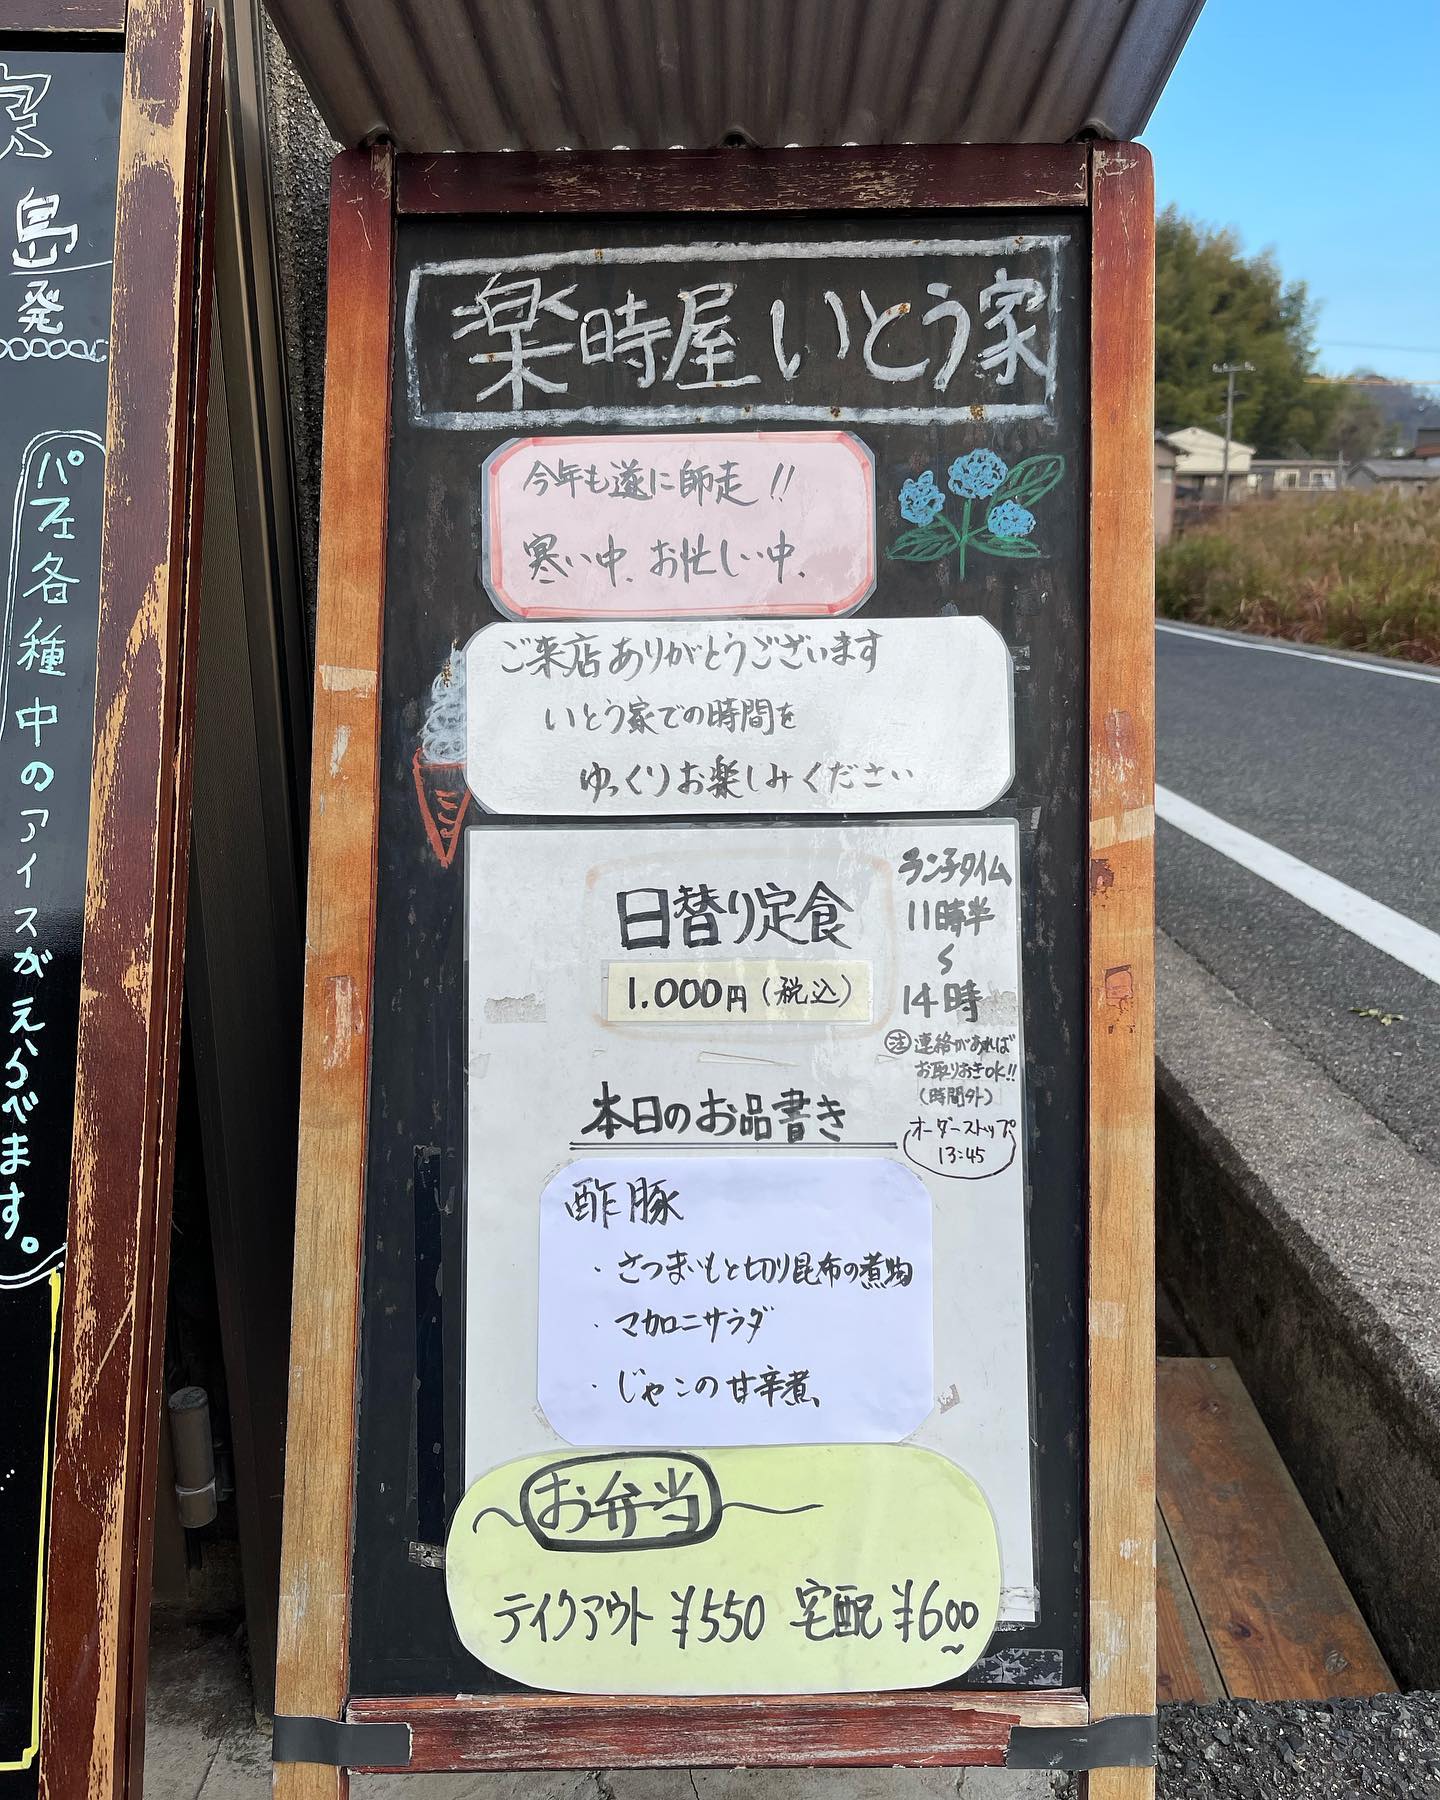 島
発
パフェ各種中のアイスがえらべます。
楽時屋いとう家
今年も遂に師走!!
寒い中、お忙しい中、
ご来店ありがとうございます
いとう家での時間を
ゆっくりお楽しみください
日替り定食
1.000円(税込)
ランチタイム
11時半
〜
14時
注 連絡があれば
お取りおきOK!!
(時間外)
オーダーストップ
13:45
本日のお品書き
酢豚
・さつまいもと切り昆布の煮物
・マカロニサラダ
・じゃこの甘辛煮、
〜お弁当〜
テイクアウト ¥550 宅配 ¥600〜